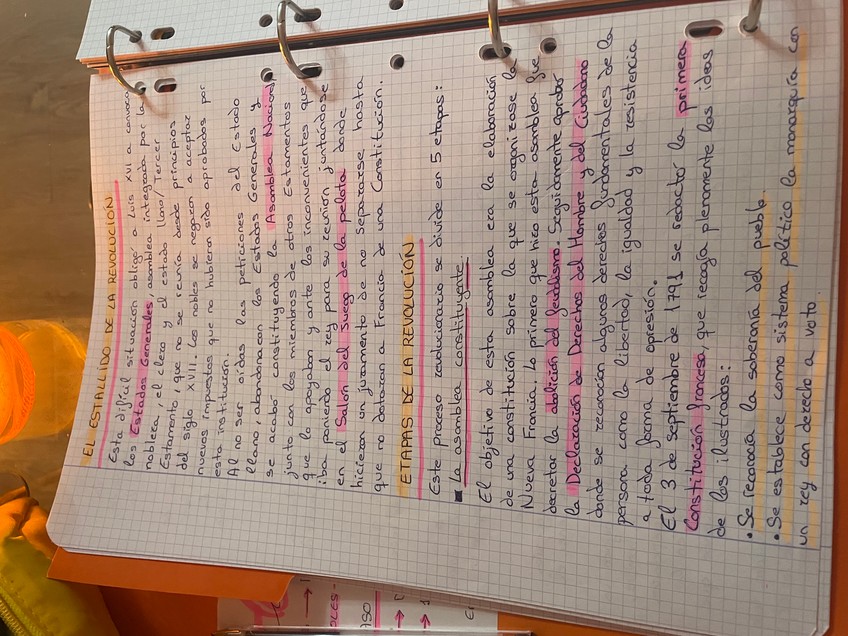 EL ESTALLIDO DE LA REVOLUCIÓN
Esta difícil situación obligó a Luis XVI a convocar
los Estados Generales, asamblea integrada por la
nobleza, el clero y el estado llano/Tercer
Estamento, que no se reunía desde principios
del siglo XVII. Los nobles se negaron a aceptar
nuevos impuestos que no hubieran sido aprobados por
esta institución.
Al no ser oídas las peticiones del Estado
llano, abandonaron los Estados Generales y
se acabó constituyendo la Asamblea Nacional,
junto con los miembros de otros Estamentos
que lo apoyaban y ante los inconvenientes que
iba poniendo el rey para su reunión juntándose
en el Salón del Juego de la pelota donde
hicieron un juramento de no separarse hasta
que no dotaran a Francia de una Constitución.
ETAPAS DE LA REVOLUCIÓN
Este proceso revolucionario se divide en 5 etapas:
▪ La asamblea constituyente.
El objetivo de esta asamblea era la elaboración
de una constitución sobre la que se organizase la
Nueva Francia. Lo primero que hizo esta asamblea fue
decretar la abolición del feudalismo. Seguidamente aprobó
la Declaración de Derechos del Hombre y del Ciudadano
donde se reconocían algunos derechos fundamentales de la
persona como la libertad, la igualdad y la resistencia
a toda forma de opresión.
El 3 de septiembre de 1791 se redactó la primera
Constitución francesa, que recogía plenamente las ideas
de los ilustrados:
• Se reconocía la soberanía del pueblo.
• Se estabece como sistema político la monarquía con
un rey con derecho a voto.